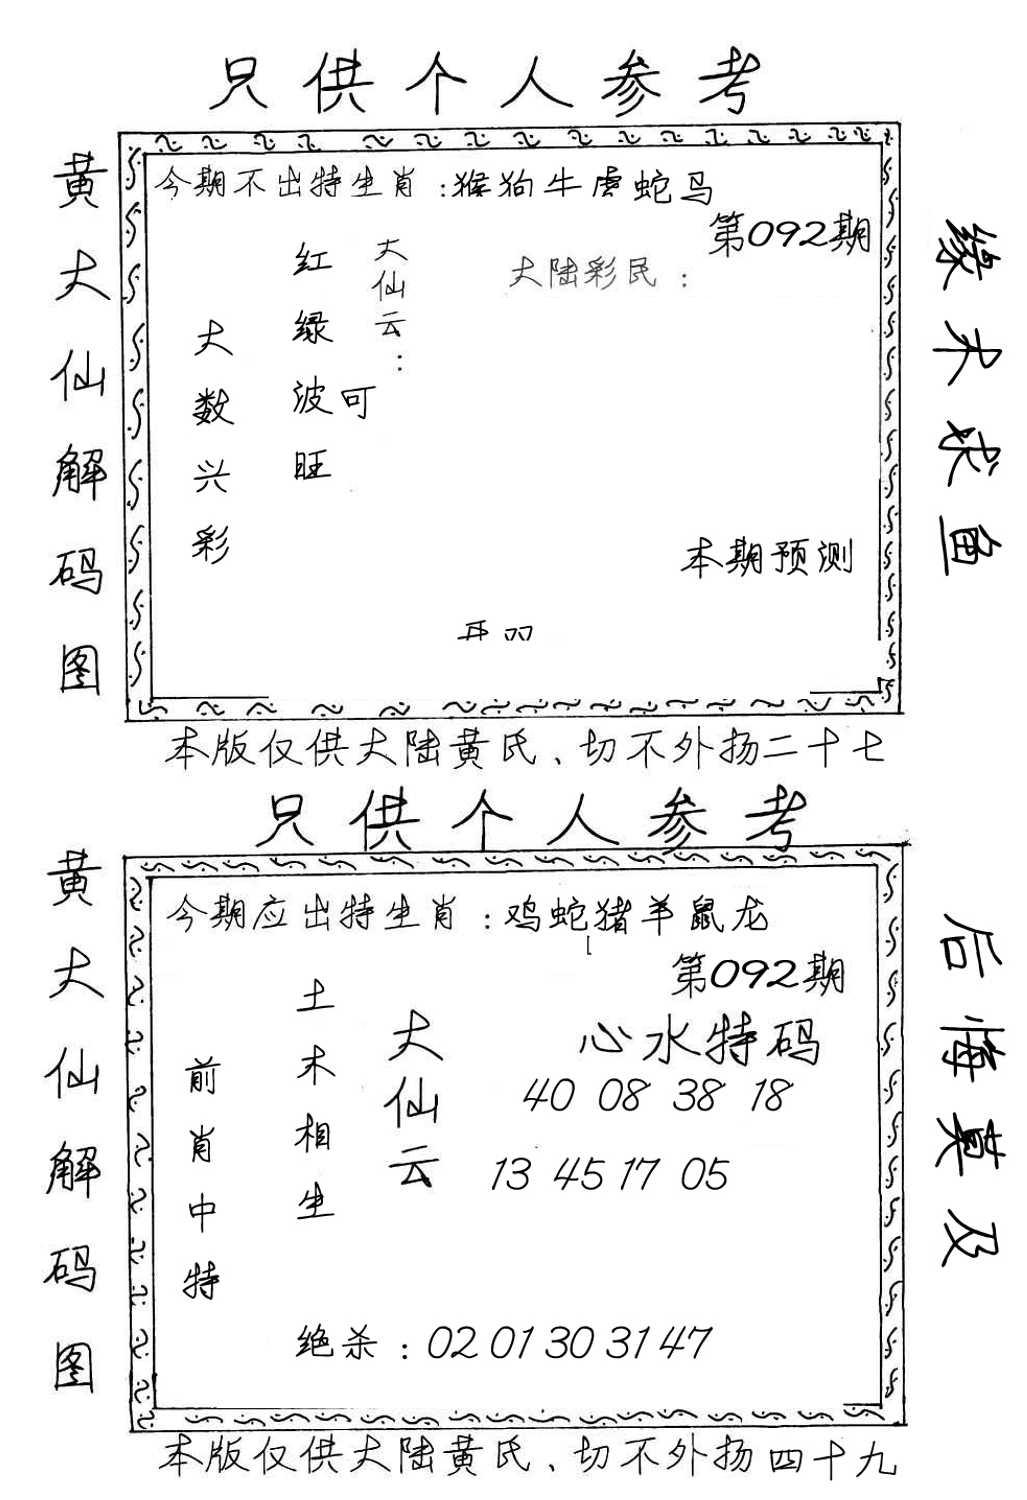 只供个人参考
黄大仙解码图
今期不出特生肖：猴狗牛虎蛇马
第092期
大陆彩民：
大仙云：
红绿波可旺
大数兴彩
本期预测
缘木求鱼
本版仅供大陆黄氏、切不外扬二十七
只供个人参考
黄大仙解码图
今期应出特生肖：鸡蛇猪羊鼠龙
第092期
心水特码
40 08 38 18
13 45 17 05
大仙云
土木相生
前肖中特
绝杀：02 01 30 31 47
后悔莫及
本版仅供大陆黄氏、切不外扬四十九